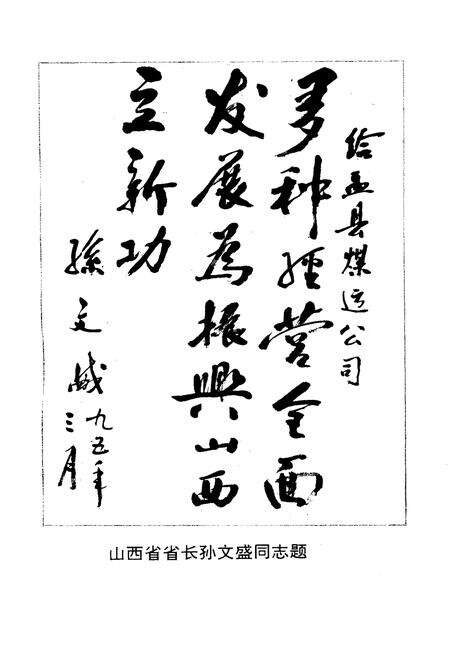 给盂县煤运公司
多种经营全面
发展為振興山西
立新功
孫文盛
九五年
三月
山西省省长孙文盛同志题